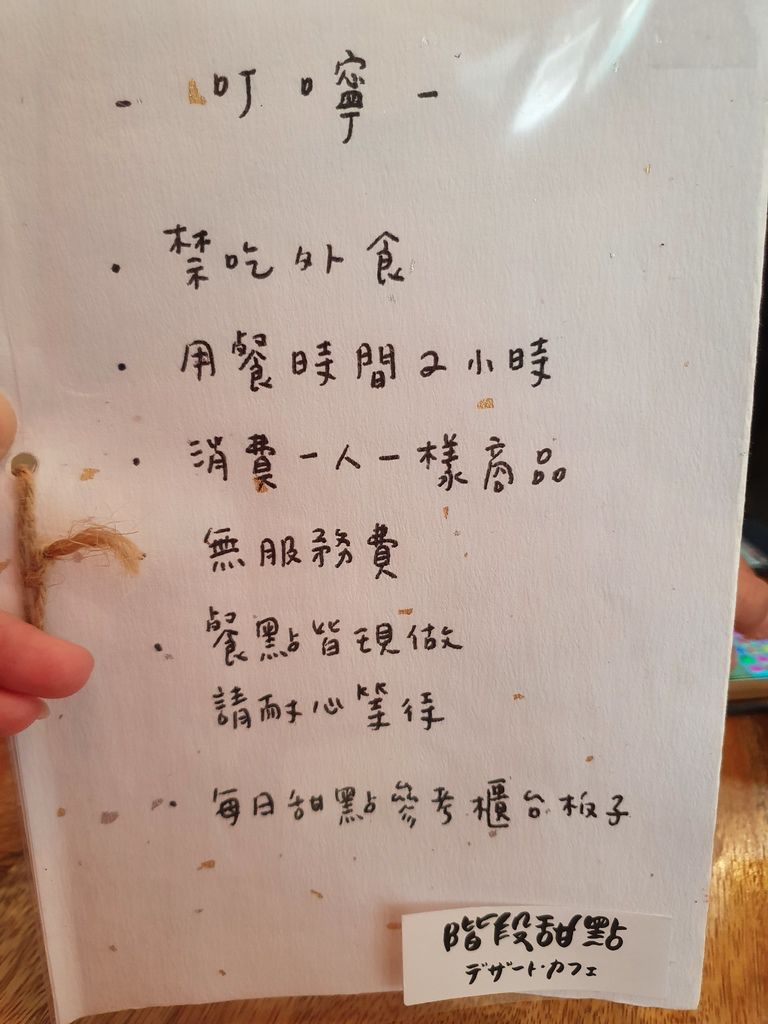 - 叮嚀 -
· 禁吃外食
· 用餐時間2小時
· 消費一人一樣商品
無服務費
· 餐點皆現做
請耐心等待
· 每日甜點參考櫃台板子
階段甜點
デザート・カフェ